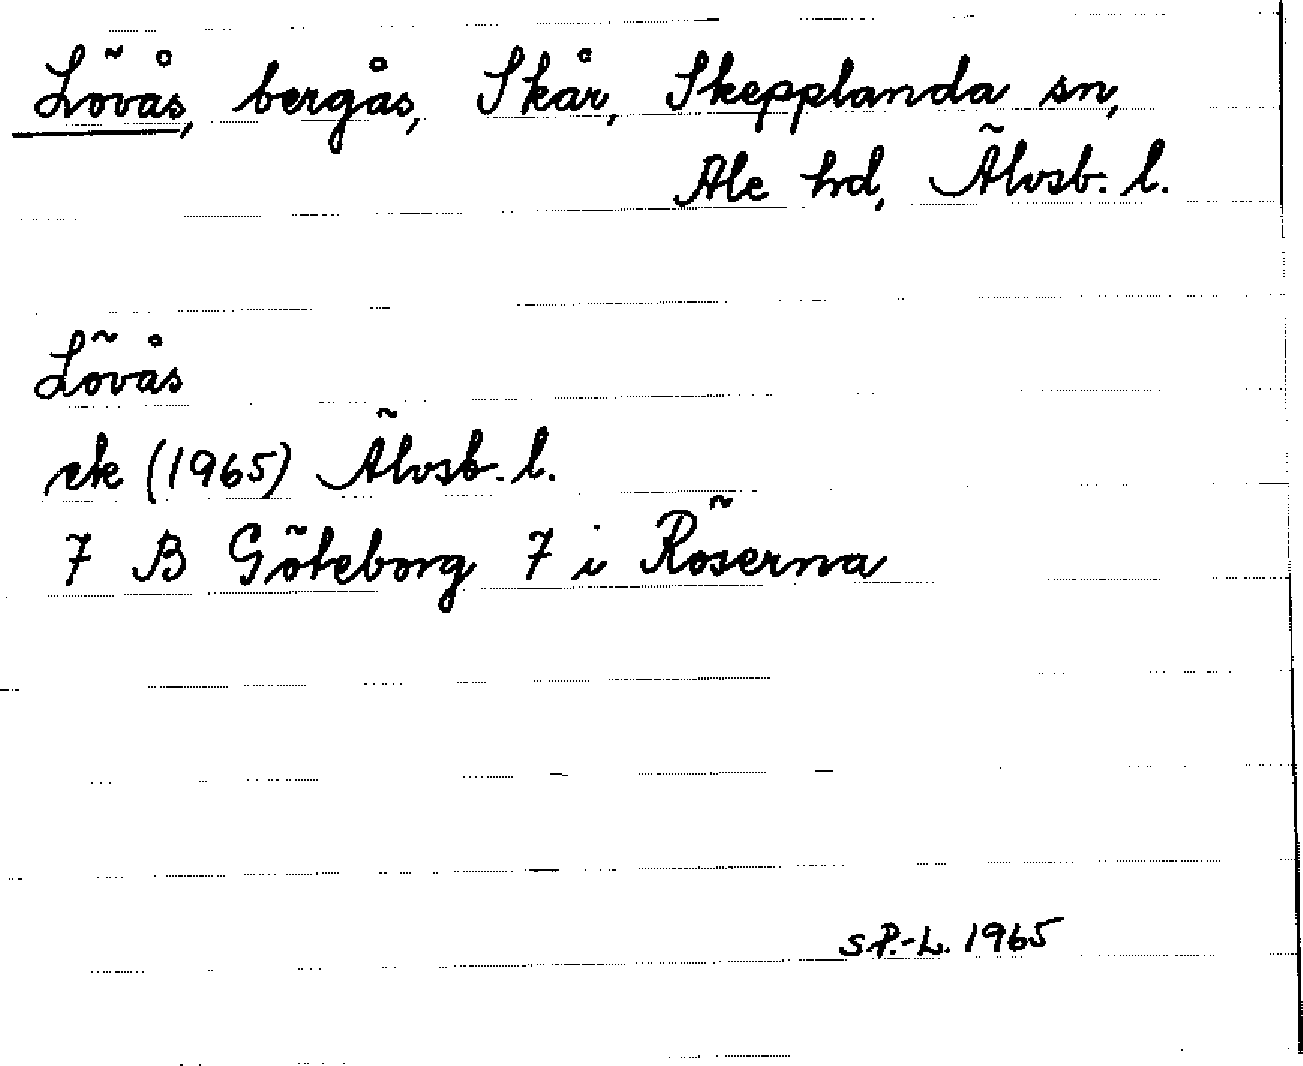 Lövås, bergås, Skår, Skepplanda sn,
Ale hd, Älvsb. l.
Lövås
ek (1965) Älvsb. l.
7 B Göteborg 7 i Röserna
S P.-L. 1965